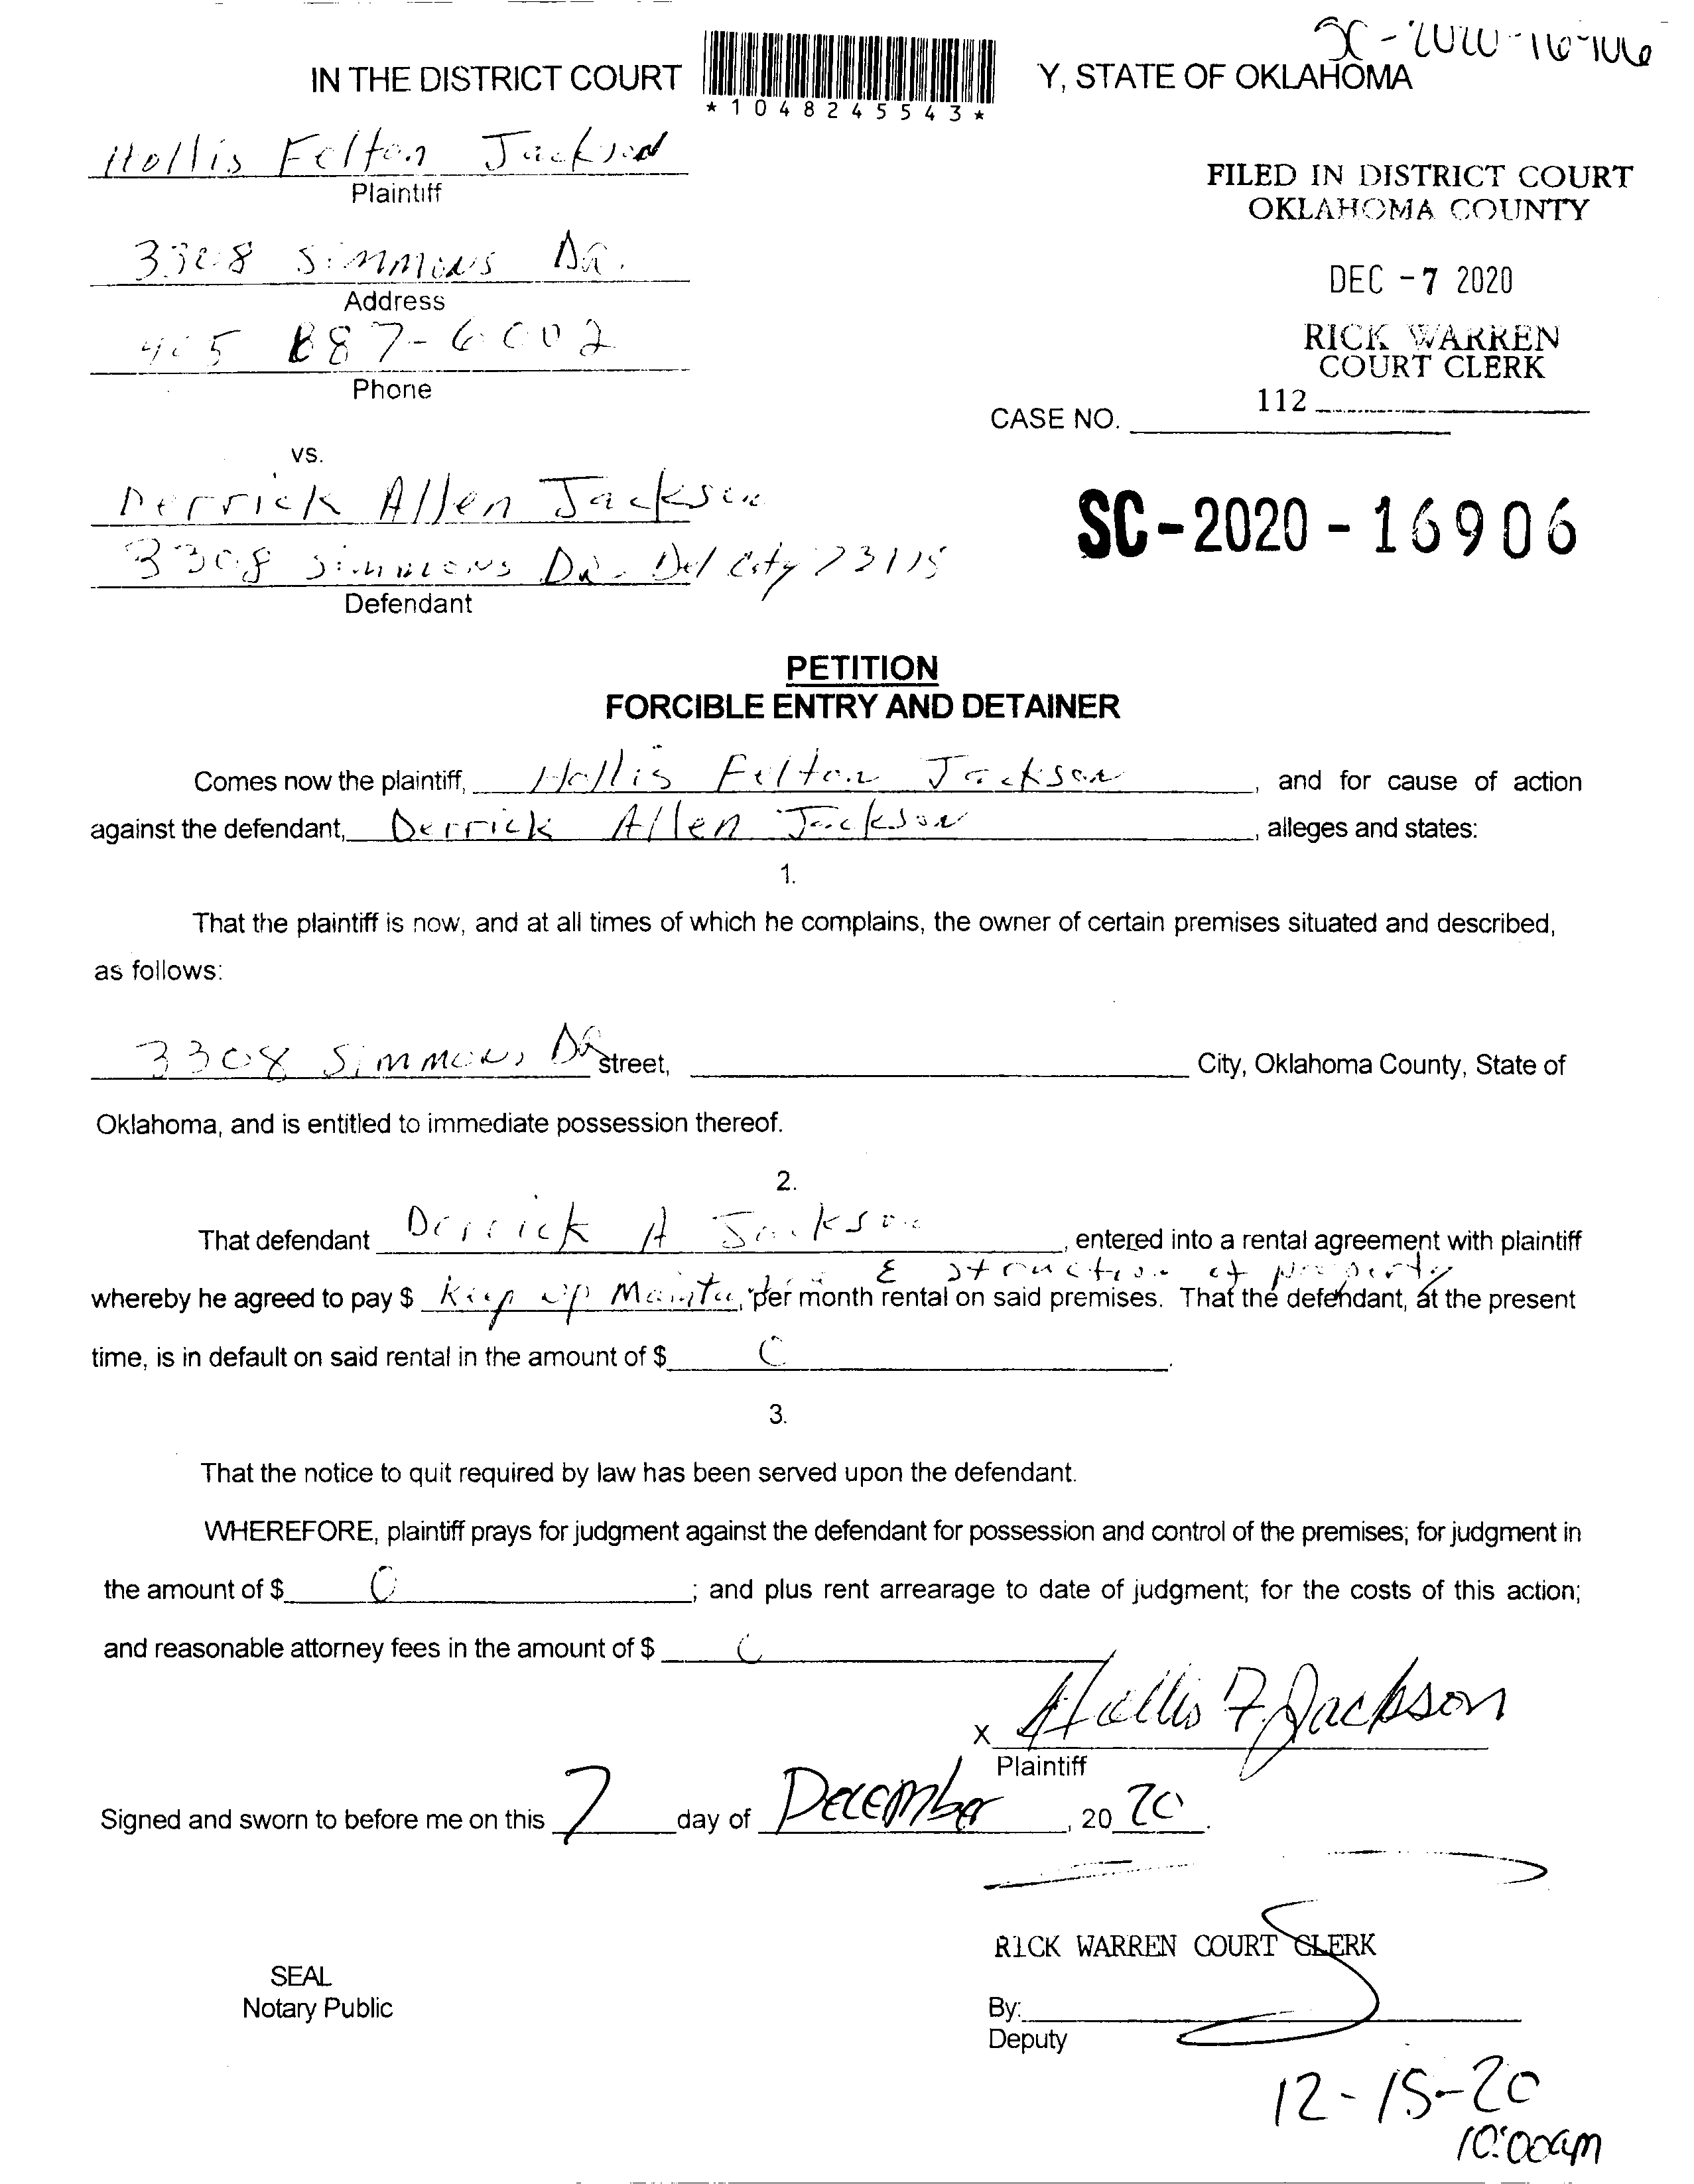 SC-2020-16906
IN THE DISTRICT COURT Y, STATE OF OKLAHOMA
*1048245543*
Hollis Felton Jackson
Plaintiff
FILED IN DISTRICT COURT
OKLAHOMA COUNTY
3308 Simmons DR.
Address
DEC -7 2020
405 887-6002
Phone
RICK WARREN
COURT CLERK
112
CASE NO.
vs.
Derrick Allen Jackson
SC-2020-16906
3308 Simmons DR. Del City 73115
Defendant
PETITION
FORCIBLE ENTRY AND DETAINER
Comes now the plaintiff, Hollis Felton Jackson, and for cause of action
against the defendant, Derrick Allen Jackson, alleges and states:
1.
That the plaintiff is now, and at all times of which he complains, the owner of certain premises situated and described,
as follows:
3308 Simmons DR street, City, Oklahoma County, State of
Oklahoma, and is entitled to immediate possession thereof.
2.
That defendant Derrick A Jackson, entered into a rental agreement with plaintiff
& of property
whereby he agreed to pay $ Keep up per month rental on said premises. That the defendant, at the present
time, is in default on said rental in the amount of $ 0.
3.
That the notice to quit required by law has been served upon the defendant.
WHEREFORE, plaintiff prays for judgment against the defendant for possession and control of the premises; for judgment in
the amount of $ 0; and plus rent arrearage to date of judgment; for the costs of this action;
and reasonable attorney fees in the amount of $ 0
x Hollis F Jackson
Plaintiff
Signed and sworn to before me on this 7 day of December, 20 20.
RICK WARREN COURT CLERK
SEAL
Notary Public
By:
Deputy
12-15-20
10:00am